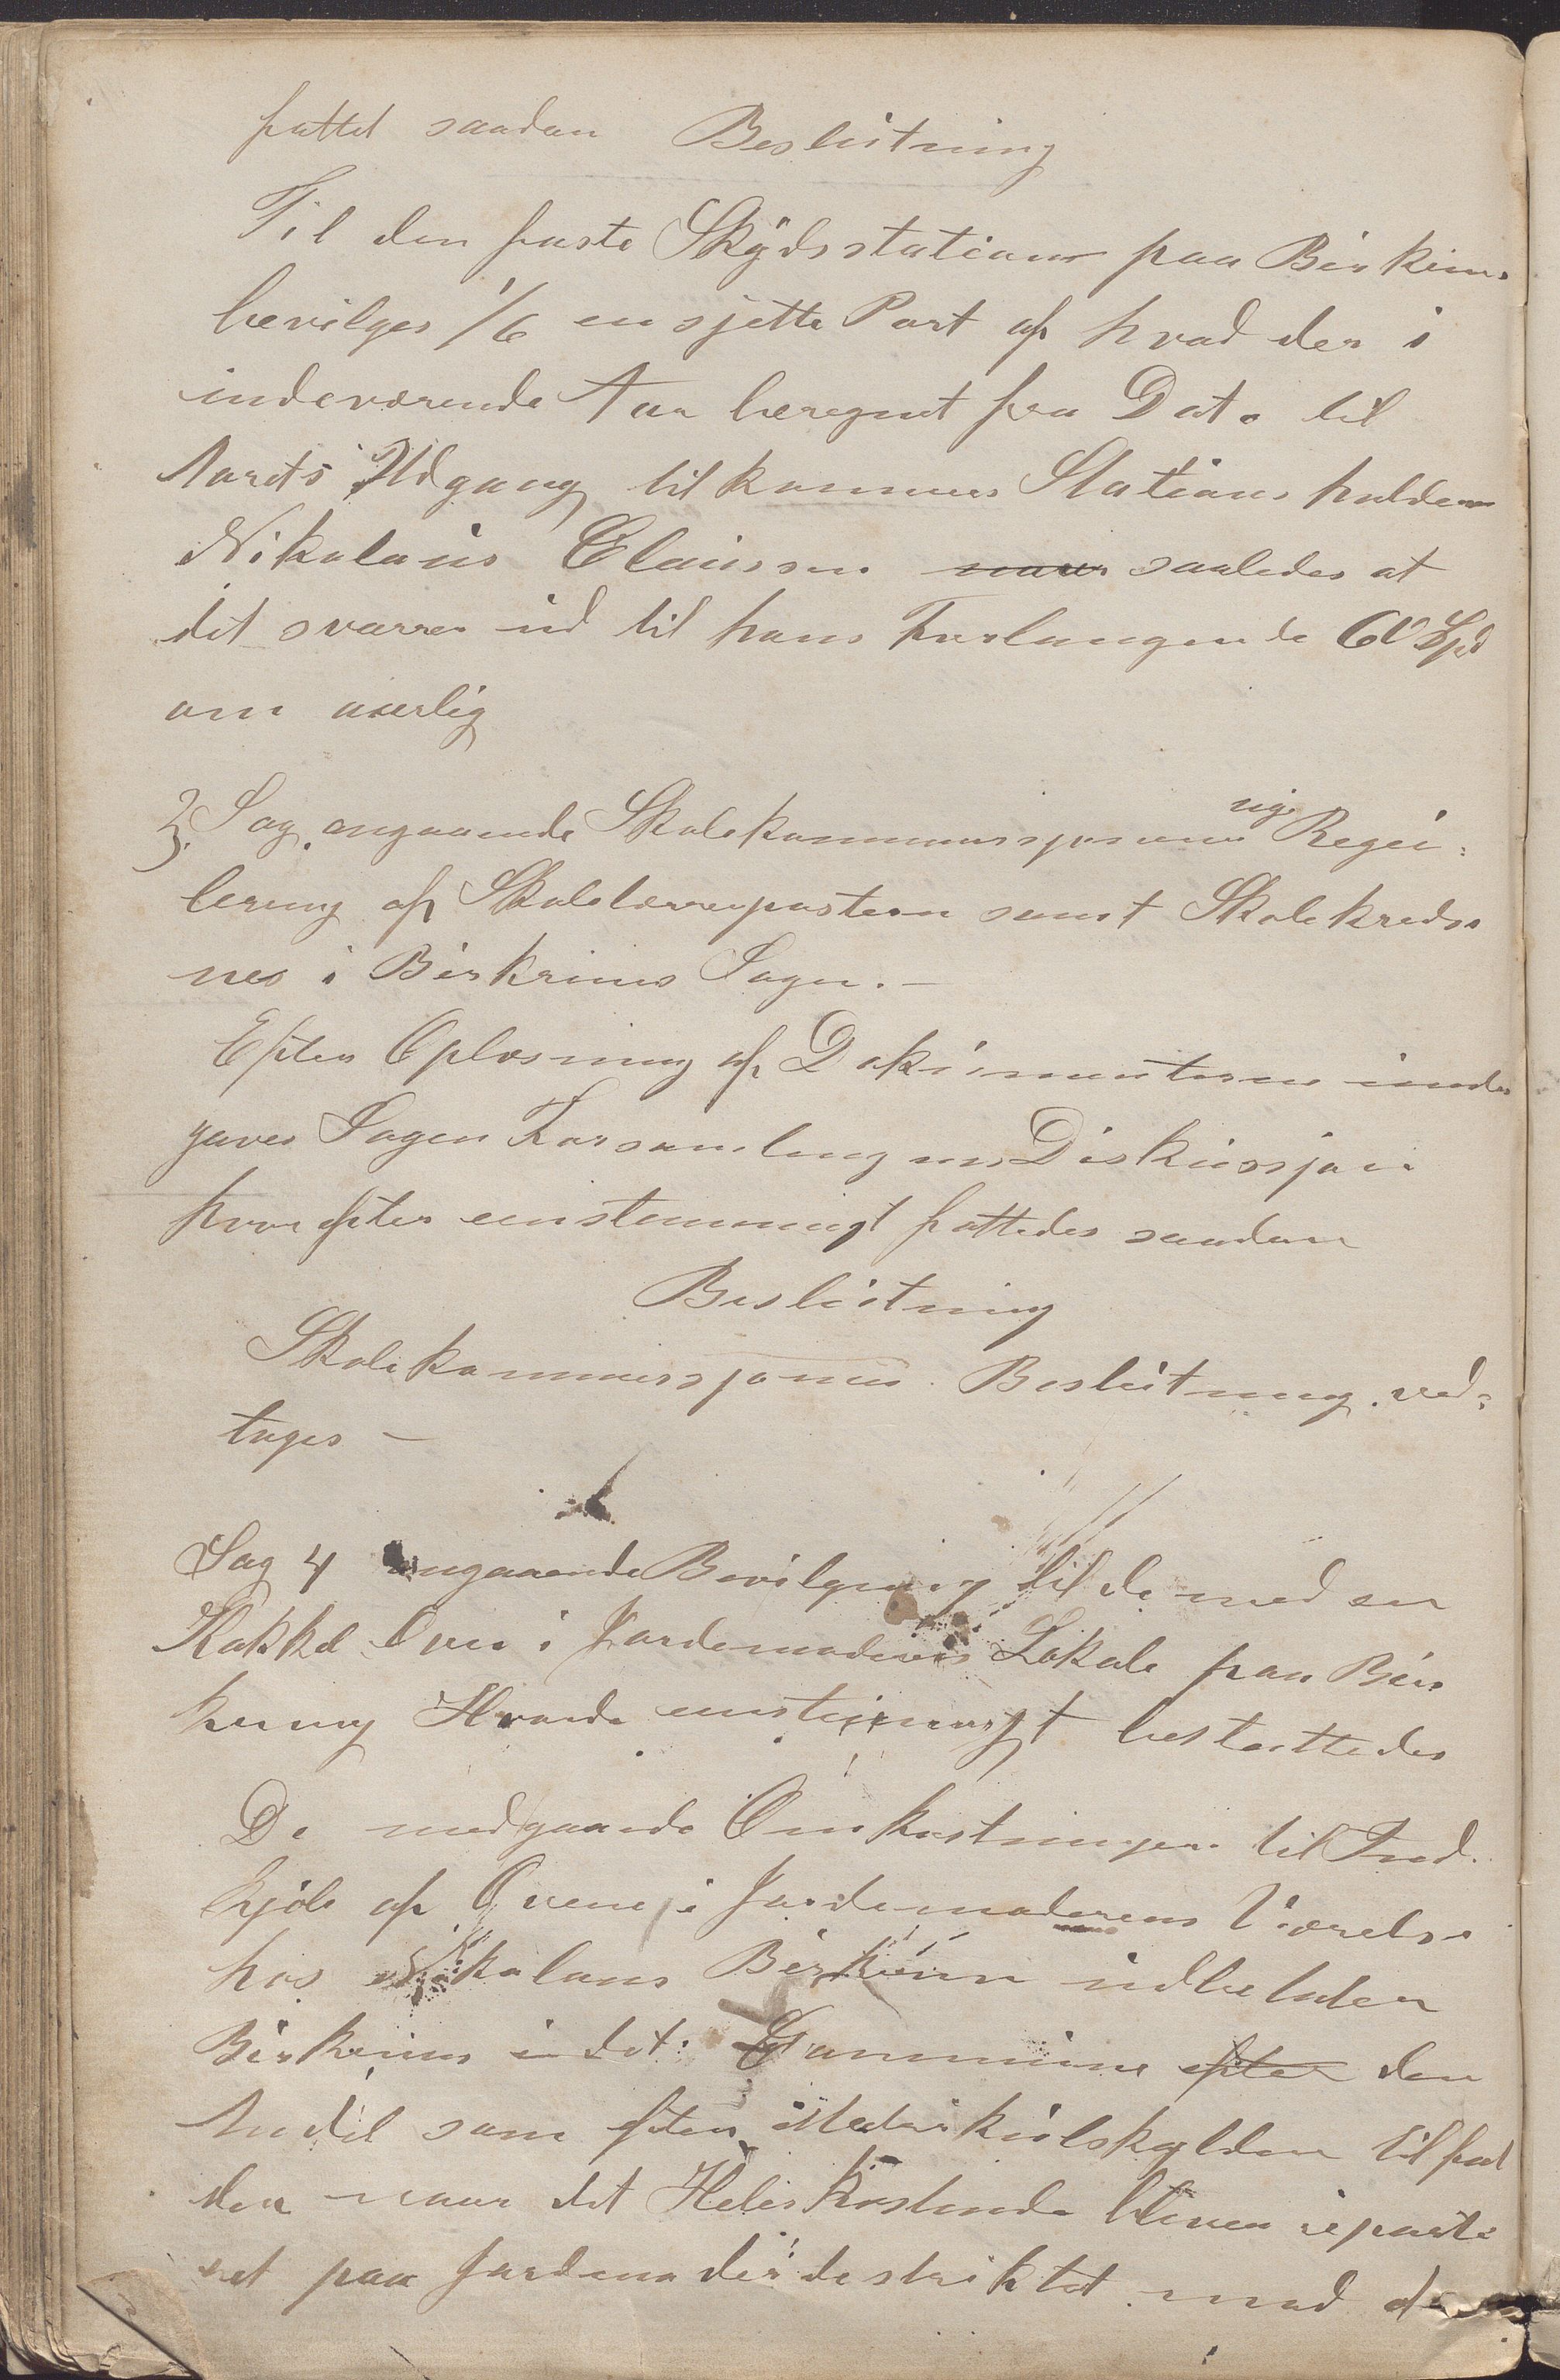 fattet saadan Beslutning
Til den faste Skydsstation paa Birkrim
bevilges 1/6 en sjette Part af hvad der i
indeværende Aar beregnet fra Dato til
Aarets Udgang tilkommer Stationsholder
Nikolaus Claussen saaledes at
det svarer ud til hans Forlangende 60 Spd
om aarlig
3. Sag angaaende Skolekommissjonens Regu:
lering af Skolelærerposterne samt Skolekredse
nes i Birkrims Sogn. -
Efter Oplæsning af Dokumenterne under
gaves Sagen Forsamlingens Diskussjon
hvorefter enstemmigt fattedes saadan
Beslutning
Skolekommissjonens Beslutning ved:
tages -
Sag 4 angaaende Bevilgning til de med en
Kakkel Ovn i Jordemoderens Lokale paa Bir
krim Hvorda enstemmigt besluttedes
De medgaaende Omkostninger til Ind
kjøb af Ovnen i Jordemoderens Værelse
hos Nikolaus Birkrim udbetaler
Birkrim i det Summine efter den
Andel som efter Matrikulskylden tilfal
der naar det Hele Kostende bliver reparti
ret paa Jordemoderdestriktet med